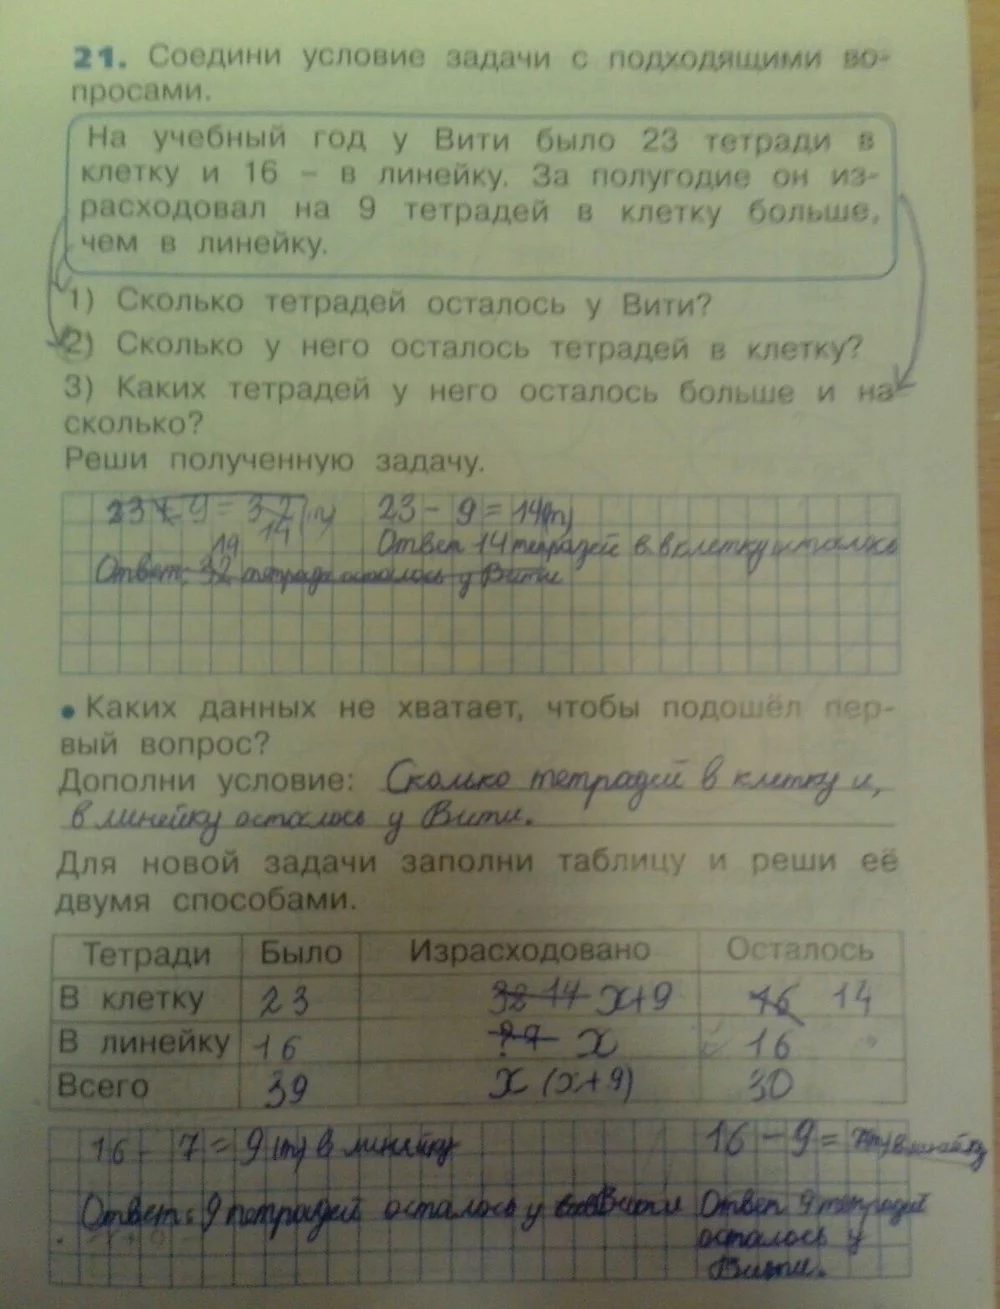 21. Соедини условие задачи с подходящими во-
просами.
На учебный год у Вити было 23 тетради в
клетку и 16 – в линейку. За полугодие он из-
расходовал на 9 тетрадей в клетку больше,
чем в линейку.
1) Сколько тетрадей осталось у Вити?
2) Сколько у него осталось тетрадей в клетку?
3) Каких тетрадей у него осталось больше и на
сколько?
Реши полученную задачу.
23 + 9 = 32 (т) 23 - 9 = 14(т)
19 14
Ответ 14 тетрадей в клетку осталось
Ответ: 32 тетради осталось у Вити
• Каких данных не хватает, чтобы подошёл пер-
вый вопрос?
Дополни условие: Сколько тетрадей в клетку и,
в линейку осталось у Вити.
Для новой задачи заполни таблицу и реши её
двумя способами.
Тетради Было Израсходовано Осталось
В клетку 23 32 14 х+9 16 14
В линейку 16 х 16
Всего 39 х (х+9) 30
16 - 7 = 9 (т) в линейку 16 - 9 = 7(т) в линейку
Ответ: 9 тетрадей осталось у Вити Ответ 9 тетрадей
осталось у
Вити.